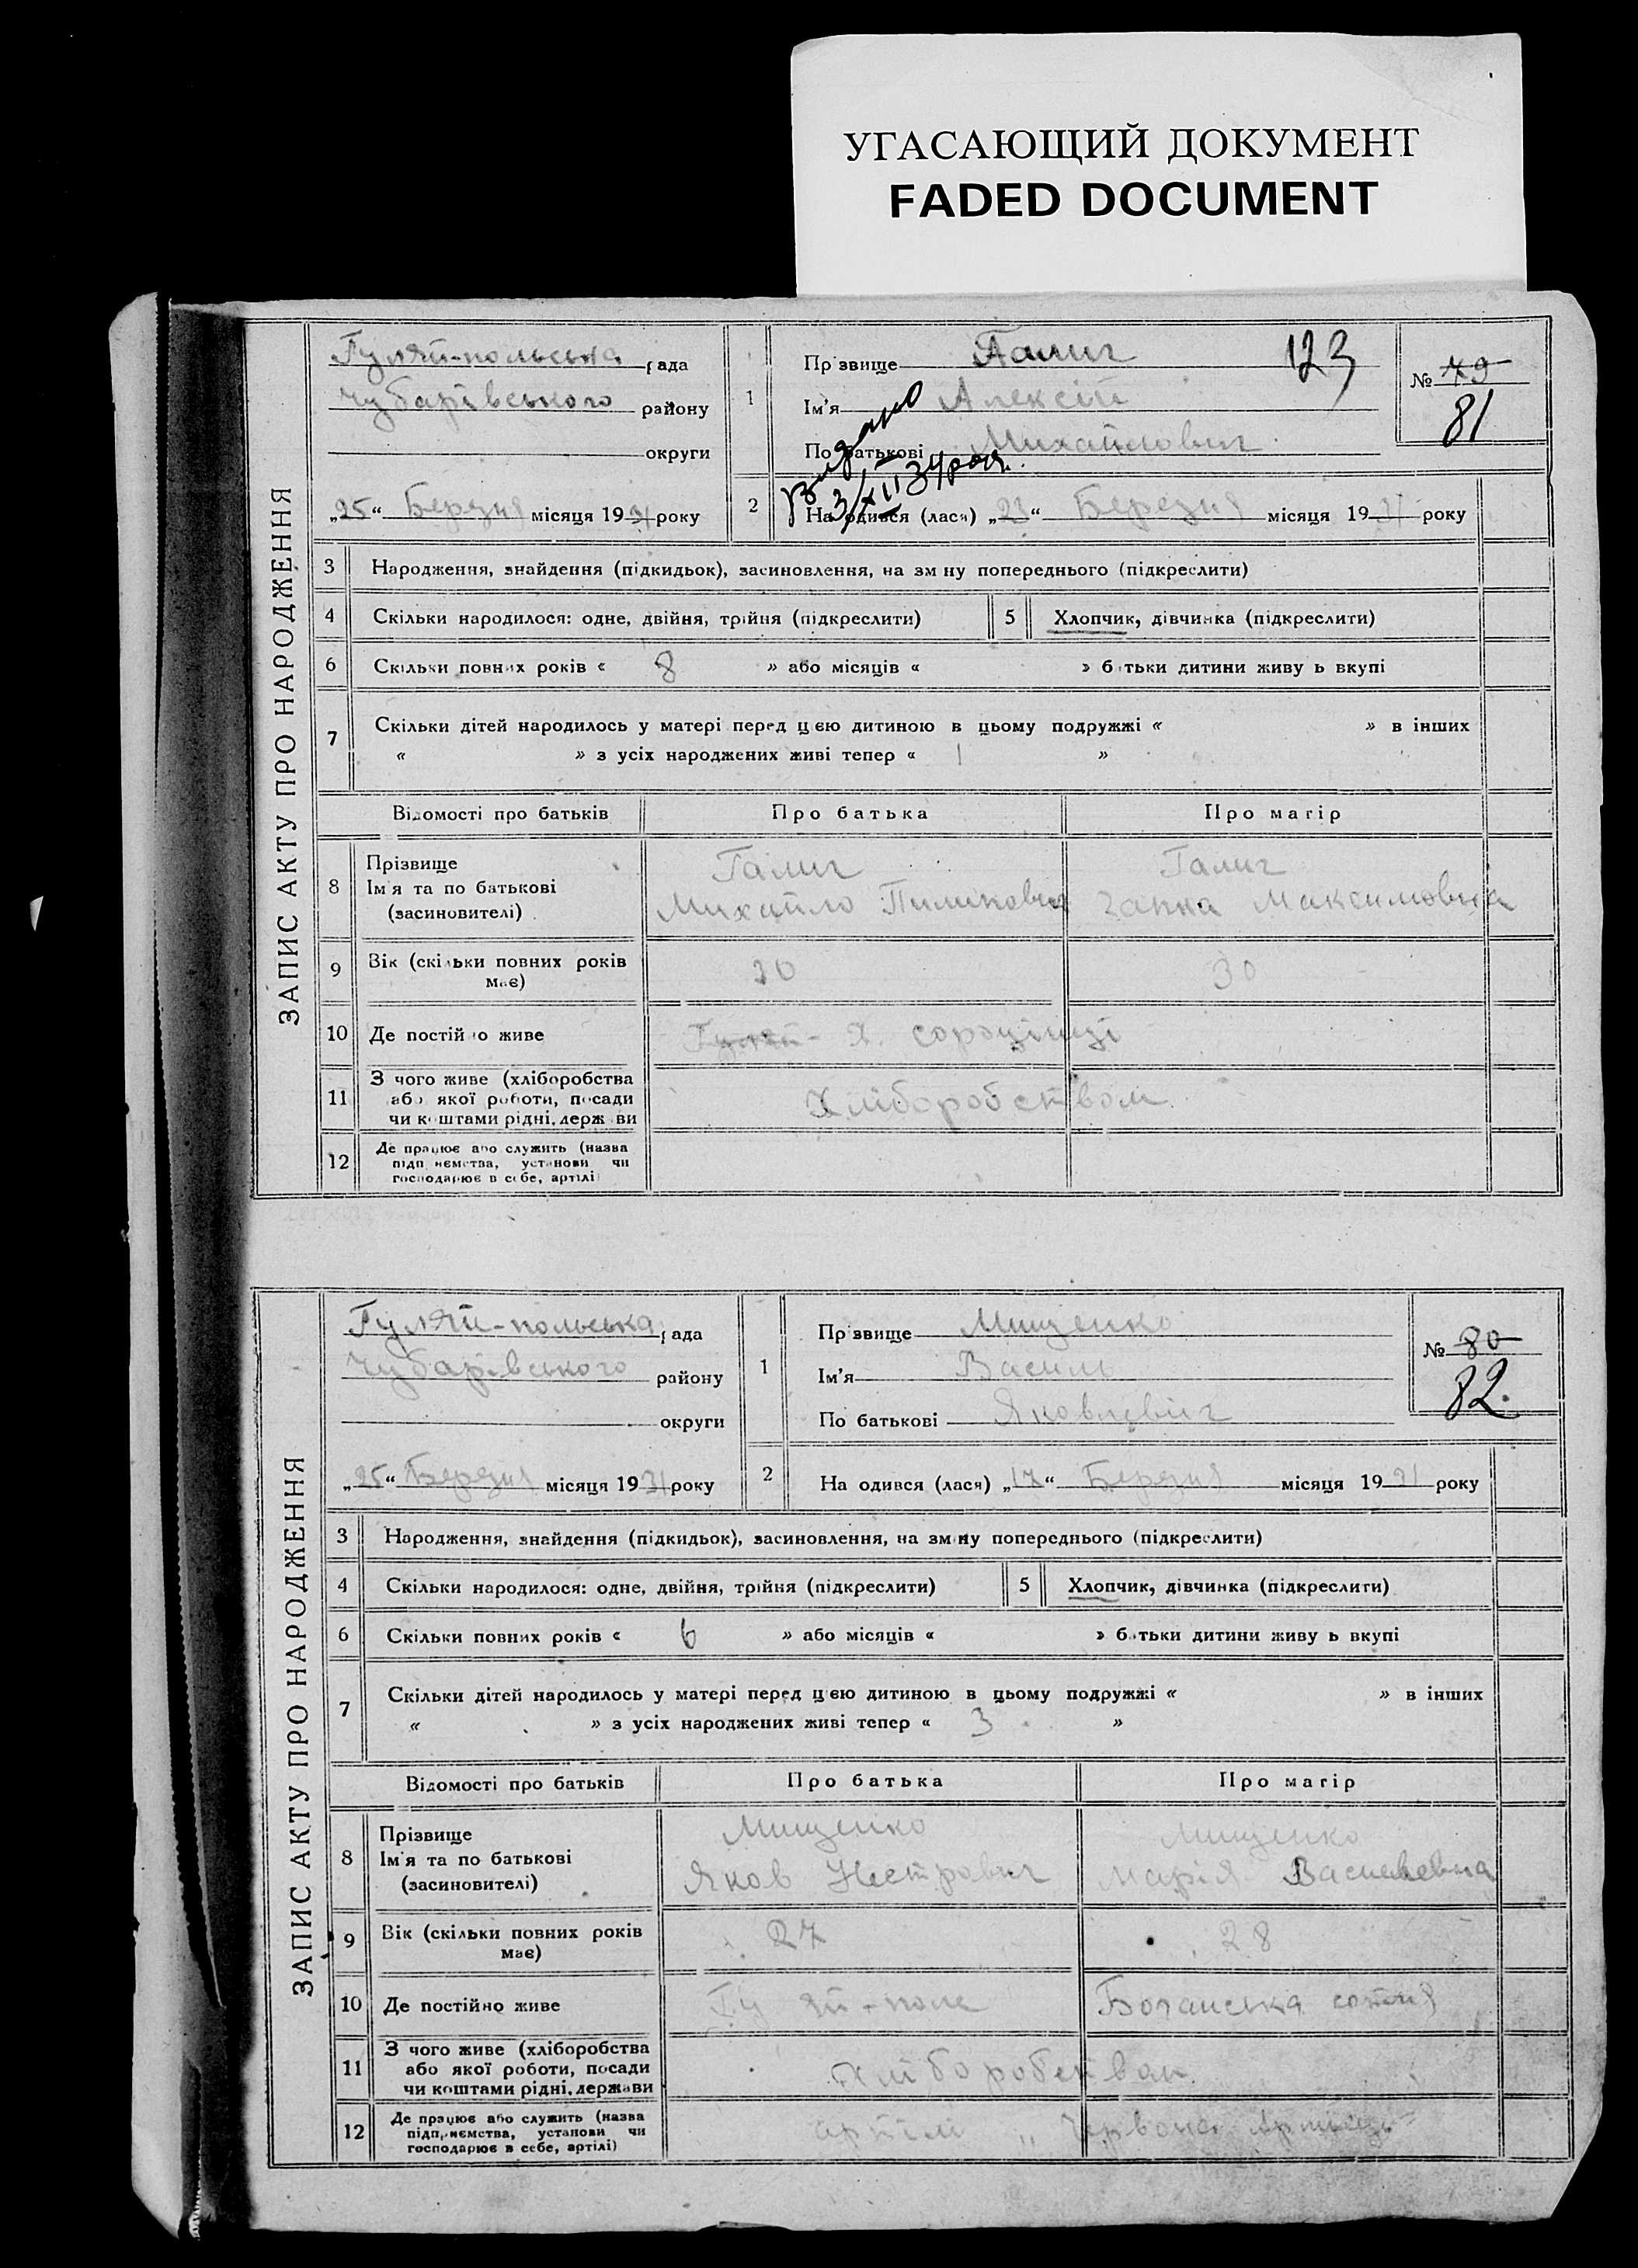 УГАСАЮЩИЙ ДОКУМЕНТ
FADED DOCUMENT
ЗАПИС АКТУ ПРО НАРОДЖЕННЯ
Гуляй-польська рада
Чубарівського району
округи
„25“ Березня місяця 1931 року
1
Прізвище Галич
123
Ім'я Алексій
По батькові Михайлович
Видано
3/XII 34 року.
№ 79
81
2
Народився (лася) „23“ Березня місяця 1931 року
3 Народження, знайдення (підкидьок), засиновлення, на зміну попереднього (підкреслити)
4 Скільки народилося: одне, двійня, трійня (підкреслити)
5 Хлопчик, дівчинка (підкреслити)
6 Скільки повних років « 8 » або місяців « » батьки дитини живуть вкупі
7 Скільки дітей народилось у матері перед цією дитиною в цьому подружжі « » в інших
« » з усіх народжених живі тепер « 1 »
Відомості про батьків Про батька Про матір
8 Прізвище
Ім'я та по батькові
(засиновителі)
Галич
Михайло Пилипович
Галич
Ганна Максимовна
9 Вік (скільки повних років
має)
30 30
10 Де постійно живе
Х. Сороцінці
11 З чого живе (хліборобства
або якої роботи, посади
чи коштами рідні, держави
Хліборобством
12 Де працює або служить (назва
підприємства, установи чи
господарює в себе, артілі)
ЗАПИС АКТУ ПРО НАРОДЖЕННЯ
Гуляй-польська рада
Чубарівського району
округи
„25“ Березня місяця 1931 року
1
Прізвище Мищенко
Ім'я Василь
По батькові Яковлєвич
№ 80
82.
2
Народився (лася) „17“ Березня місяця 1931 року
3 Народження, знайдення (підкидьок), засиновлення, на зміну попереднього (підкреслити)
4 Скільки народилося: одне, двійня, трійня (підкреслити)
5 Хлопчик, дівчинка (підкреслити)
6 Скільки повних років « 6 » або місяців « » батьки дитини живуть вкупі
7 Скільки дітей народилось у матері перед цією дитиною в цьому подружжі « » в інших
« » з усіх народжених живі тепер « 3 »
Відомості про батьків Про батька Про матір
8 Прізвище
Ім'я та по батькові
(засиновителі)
Мищенко
Яков Нестрович
Мищенко
Марія Васильевна
9 Вік (скільки повних років
має)
27 28
10 Де постійно живе
Гуляй-поле сотня
11 З чого живе (хліборобства
або якої роботи, посади
чи коштами рідні, держави
Хліборобством
12 Де працює або служить (назва
підприємства, установи чи
господарює в себе, артілі)
артіли „ Червона